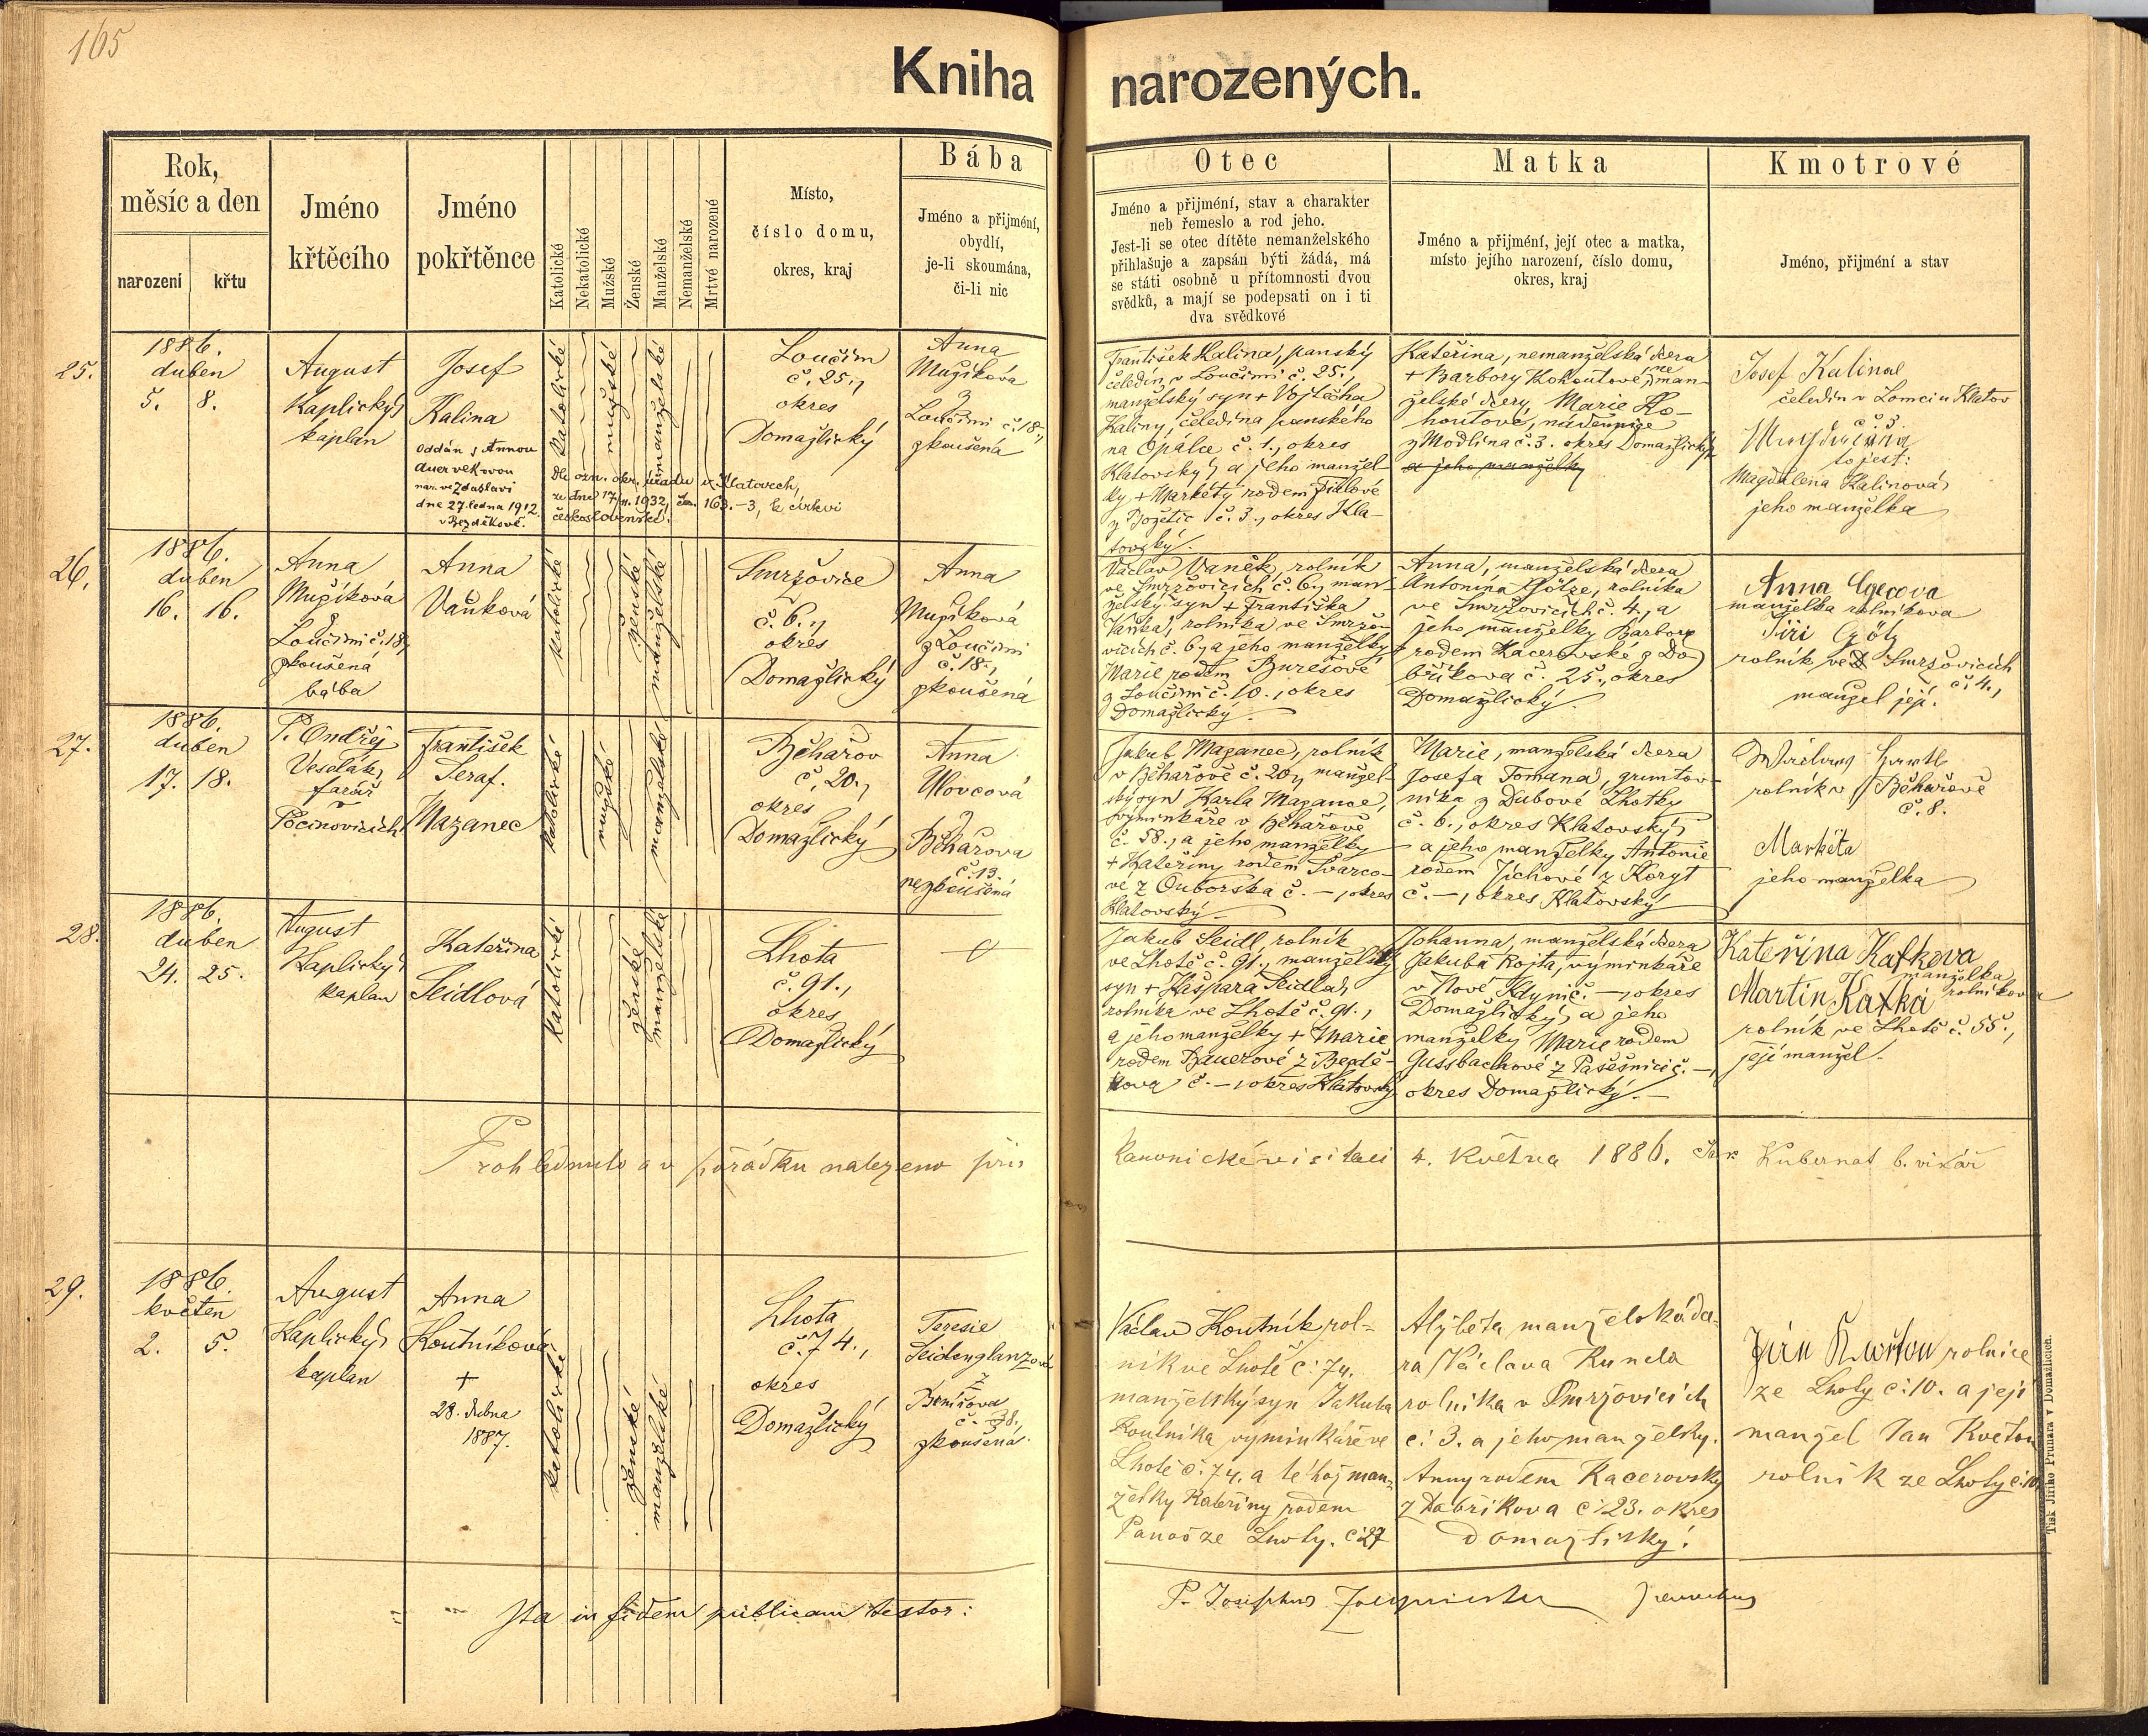 165
Kniha narozených.
Rok,
měsíc a den
narození
křtu
Jméno
křtěcího
Jméno
pokřtěnce
Katolické
Nekatolické
Mužské
Ženské
Manželské
Nemanželské
Mrtvé narozené
Místo,
číslo domu,
okres, kraj
Bába
Jméno a přijmění,
obydlí,
je-li skoumána,
či-li nic
Otec
Jméno a přijmění, stav a charakter
neb řemeslo a rod jeho.
Jest-li se otec dítěte nemanželského
přihlašuje a zapsán býti žádá, má
se státi osobně u přítomnosti dvou
svědků, a mají se podepsati on i ti
dva svědkové
Matka
Jméno a přijmění, její otec a matka,
místo jejího narození, číslo domu,
okres, kraj
Kmotrové
Jméno, přijmění a stav
25.
1886.
duben
5. 8.
August
Kaplický,
kaplan
Josef
Kalina
Oddán s Annou
dne 27. ledna 1912
v Bezděkově.
katolické
mužské
manželské
Dle ozn. okr. úřadu v Klatovech,
ze dne 17/11. 1932, čn. 163.-3, k církvi
československé.
Loučim
č. 25.,
okres
Domažlický
Anna
Mužíková
z
Loučimi č. 18.,
zkoušená
František Kalina, panský
čeledín v Loučimi č. 25.,
manželský syn + Vojtěcha
Kaliny, čeledína panského
na Opálce č. 1., okres
Klatovský, a jeho manžel-
ky + Markéty rodem Fialové
z Božetic č. 3., okres Kla-
tovský.
Kateřina, nemanželská dcera
+ Barbory Kohoutové, neman-
želské dcery Marie Ko-
houtové, nádennice
z Modlína č. 3. okres Domažlický,
a jeho manželky
Josef Kalina
čeledín v Lomci u Klatov
č. 3.
to jest:
Magdalena Kalinová,
jeho manželka
26.
1886.
duben
16. 16.
Anna
Mužíková
z
Loučimi č. 18,
zkoušená
bába
Anna
Vaňková
katolické
ženské
manželské
Smržovice
č. 6.,
okres
Domažlický
Anna
Mužíková
z Loučimi
č. 18.,
zkoušená
Václav Vaněk, rolník
ve Smržovicích č. 6, man-
želský syn + Františka
Vaňka, rolníka ve Smržo-
vicích č. 6, a jeho manželky
Marie rodem Burešové
z Loučimi č. 10., okres
Domažlický.
Anna, manželská dcera
Antonína Götze, rolníka
ve Smržovicích č. 4., a
jeho manželky Barbory
rodem Kacerovské z Do-
bříkova č. 25., okres
Domažlický.
Anna Gecova
manželka rolníkova
Jiří Götz
rolník ve Smržovicích
č. 4.,
manžel její.
27.
1886.
duben
17. 18.
P. Ondřej
Veselák,
farář
v
Pocinovicích
František
Seraf.
Mazanec
katolické
mužské
manželské
Běhařov
č. 20.,
okres
Domažlický
Anna
Vlovcová
z
Běhařova
č. 13.
nezkoušená
Jakub Mazanec, rolník
v Běhařově č. 20, manžel-
ský syn Karla Mazance,
výminkáře v Běhařově
č. 58., a jeho manželky
+ Kateřiny rodem Švarco-
vé z Ouborska č. –, okres
Klatovský
Marie, manželská dcera
Josefa Tomana, gruntov-
níka z Dubové Lhotky
č. 6., okres Klatovský,
a jeho manželky Antonie
rodem Jíchové z Koryt
č. –, okres Klatovský
rolník v Běhařově
č. 8.
Markéta
jeho manželka
28.
1886.
duben
24. 25.
August
Kaplický,
kaplan
Kateřina
Seidlová
katolické
ženské
manželské
Lhota
č. 91.,
okres
Domažlický
Jakub Seidl, rolník
ve Lhotě č. 91., manželský
syn + Kašpara Seidla,
rolníka ve Lhotě č. 91.,
a jeho manželky + Marie
rodem Bauerové z Bezdě-
kova č. –, okres Klatovský
Johanna, manželská dcera
Jakuba Rojta, výminkáře
v Nové Kdyni č. –, okres
Domažlický, a jeho
manželky Marie rodem
Gussbachové z Pašešnic č. –,
okres Domažlický.
Kateřina Kafkova
manželka
rolníkova
Martin Kafka
rolník ve Lhotě č. 55.,
její manžel.
Prohlédnuto a v pořádku nalezeno při
kanonické visitaci 4. května 1886. Kubernat b. vikář
29.
1886.
květen
2. 5.
August
Kaplický,
kaplan
Anna
Koutníková
+
28. dubna
1887.
katolické
ženské
manželské
Lhota
č. 74.,
okres
Domažlický
Teresie
Seidenglanzová
z
č. 38.,
zkoušená.
Václav Koutník rol-
ník ve Lhotě č. 74.
manželský syn Jakuba
Koutníka vyminkáře ve
Lhotě č. 74. a téhož man-
želky Kateřiny rodem
Panoš ze Lhoty. č 27
Alžbeta manželská dce-
ra Václava Kunela
rolníka v Smržovicích
č: 3. a jeho manželky.
Anny rodem Kacerovsky
z Dobřikova č: 23. okres
Domažlický.
Květon rolnice
ze Lhoty č: 10. a její
manžel Jan Květon
rolník ze Lhoty č: 10
Ita in fidem publicam testor:
P. Josephus
Tisk Jiřího Prunara v Domažlicích.